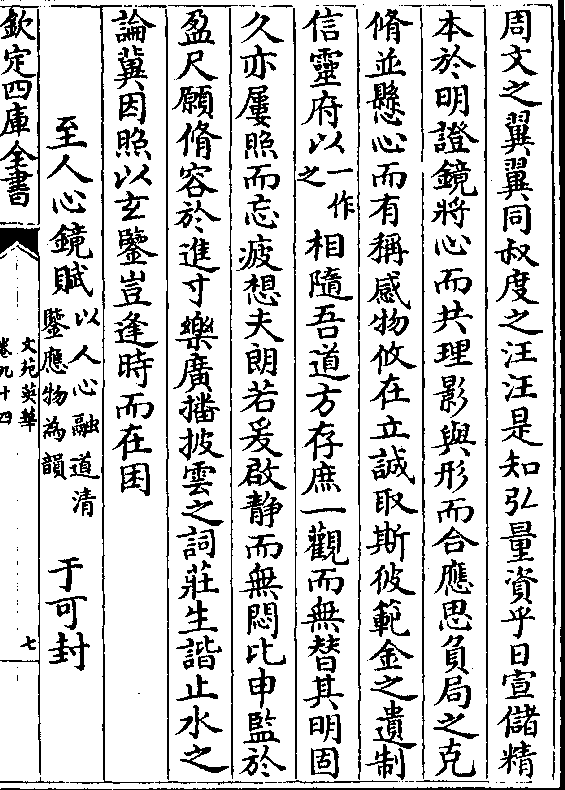 周文之翼翼同叔度之汪汪是知弘量資乎日宣儲精
本於明證鏡將心而共理影與形而合應思負局之克
脩並懸心而有稱感物攸在立誠取斯彼範金之遺制
信靈府以一作之相隨吾道方存庶一觀而無替其明固
久亦屢照而忘疲想夫朗若爰啟静而無悶比申監於
盈尺願脩容於進寸樂廣播披雲之詞莊生諧止水之
論冀因照以玄鑒豈逢時而在困
至人心鏡賦以人心融道清鑒應物為韻 于可封
欽定四庫全書
文苑英華
卷九十四
七